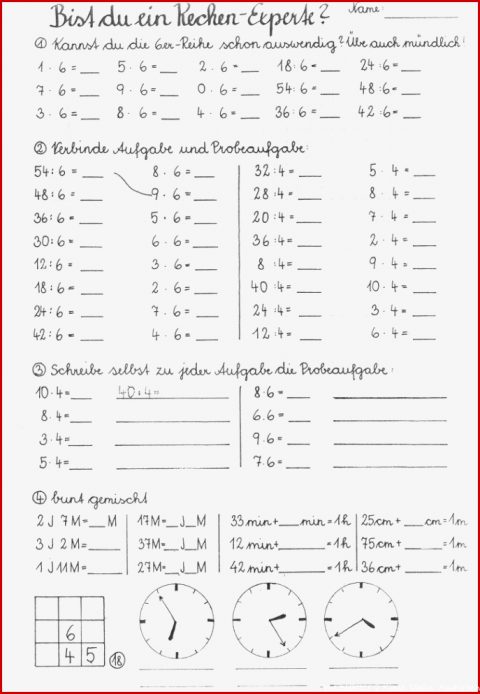 Bist du ein Rechen-Experte? Name:
① Kannst du die 6er-Reihe schon auswendig? Übe auch mündlich!
1 · 6 = ___ 5 · 6 = ___ 2 · 6 = ___ 18 : 6 = ___ 24 : 6 = ___
7 · 6 = ___ 9 · 6 = ___ 0 · 6 = ___ 54 : 6 = ___ 48 : 6 = ___
3 · 6 = ___ 8 · 6 = ___ 4 · 6 = ___ 36 : 6 = ___ 42 : 6 = ___
② Verbinde Aufgabe und Probeaufgabe:
54 : 6 = ___ 8 · 6 = ___ 32 : 4 = ___ 5 · 4 = ___
48 : 6 = ___ 9 · 6 = ___ 28 : 4 = ___ 8 · 4 = ___
36 : 6 = ___ 5 · 6 = ___ 20 : 4 = ___ 7 · 4 = ___
30 : 6 = ___ 6 · 6 = ___ 36 : 4 = ___ 2 · 4 = ___
12 : 6 = ___ 3 · 6 = ___ 8 : 4 = ___ 9 · 4 = ___
18 : 6 = ___ 2 · 6 = ___ 40 : 4 = ___ 10 · 4 = ___
24 : 6 = ___ 7 · 6 = ___ 24 : 4 = ___ 3 · 4 = ___
42 : 6 = ___ 4 · 6 = ___ 12 : 4 = ___ 6 · 4 = ___
③ Schreibe selbst zu jeder Aufgabe die Probeaufgabe:
10 · 4 = ___ 40 : 4 = ___ 8 · 6 = ___
8 · 4 = ___ 6 · 6 = ___
3 · 4 = ___ 9 · 6 = ___
5 · 4 = ___ 7 · 6 = ___
④ bunt gemischt
2 J 7 M = ___ M 17 M = __ J __ M 33 min + ___ min = 1 h 25 cm + ___ cm = 1 m
3 J 2 M = ___ 37 M = __ J __ M 12 min + ___ = 1 h 75 cm + ___ = 1 m
1 J 11 M = ___ 27 M = __ J __ M 42 min + ___ = 1 h 36 cm + ___ = 1 m
6
4 5 18